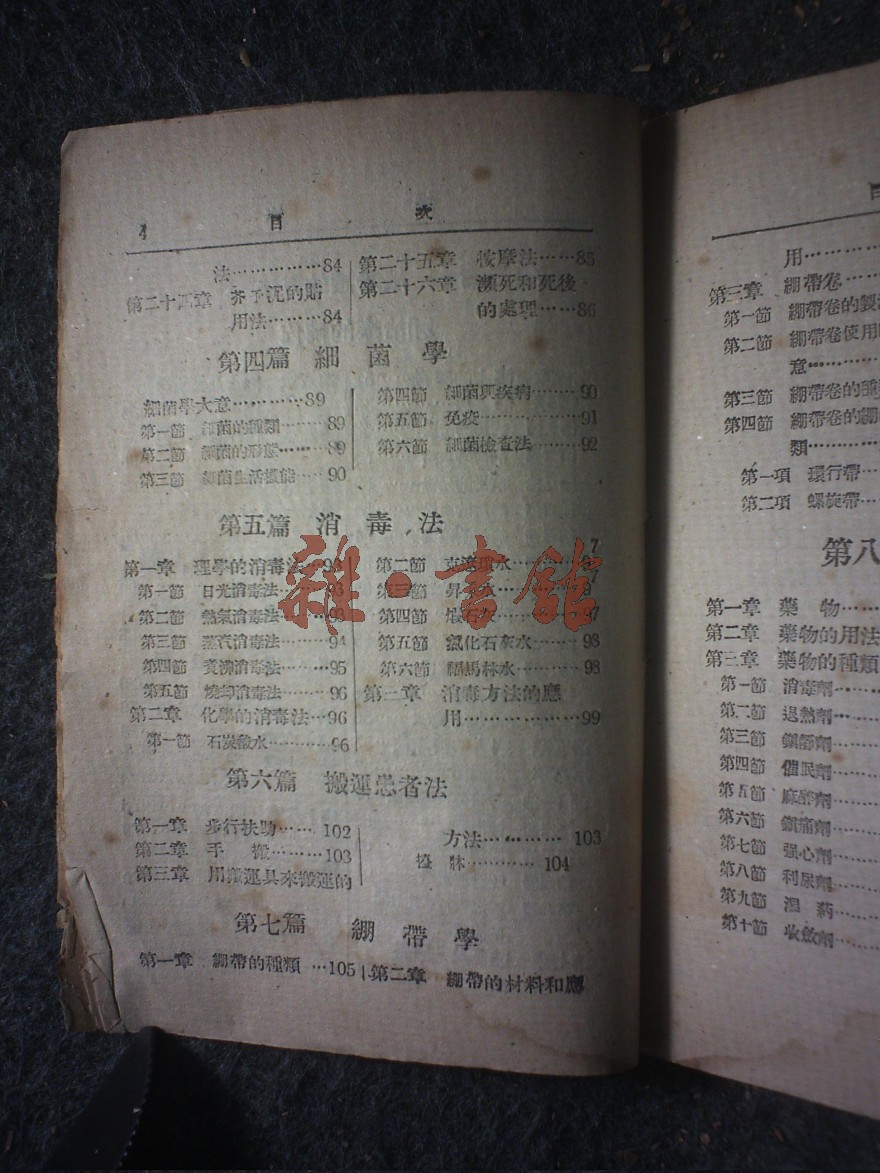 4 目 次
法……………84
第二十四章 芥子泥的貼
用法……84
第二十五章 按摩法……85
第二十六章 瀕死和死後
的處理……86
第四篇 細菌學
細菌學大意…………89
第一節 細菌的種類……89
第二節 細菌的形態……89
第三節 細菌生活機能……90
第四節 細菌與疾病………90
第五節 免疫………………91
第六節 細菌檢查法………92
第五篇 消毒法
第一章 理學的消毒法…93
第一節 日光消毒法……93
第二節 熱氣消毒法……93
第三節 蒸汽消毒法……94
第四節 煑沸消毒法……95
第五節 燒却消毒法……96
第二章 化學的消毒法…96
第一節 石炭酸水………96
第二節 水
第三節 昇 水
第四節 煅石灰 97
第五節 氯化石灰水……98
第六節 福馬林水………98
第三章 消毒方法的應
用………………99
第六篇 搬運患者法
第一章 步行扶助…… 102
第二章 手 搬………103
第三章 用搬運具來搬運的
方法………… 103
擔 牀………… 104
第七篇 綳帶學
第一章 綳帶的種類 …105
第二章 綳帶的材料和應
用…………
第三章 綳帶卷……
第一節 綳帶卷的製
第二節 綳帶卷使用
意………
第三節 綳帶卷的種
第四節 綳帶卷的綳
類…………
第一項 環行帶…
第二項 螺旋帶…
第八
第一章 藥 物……
第二章 藥物的用法
第三章 藥物的種類
第一節 消毒劑……
第二節 退熱劑…
第三節 鎮靜劑…
第四節 催眠劑…
第五節 麻醉劑…
第六節 鎮痛劑…
第七節 强心劑…
第八節 利尿劑…
第九節 瀉 药…
第十節 收斂劑…
雜·書館